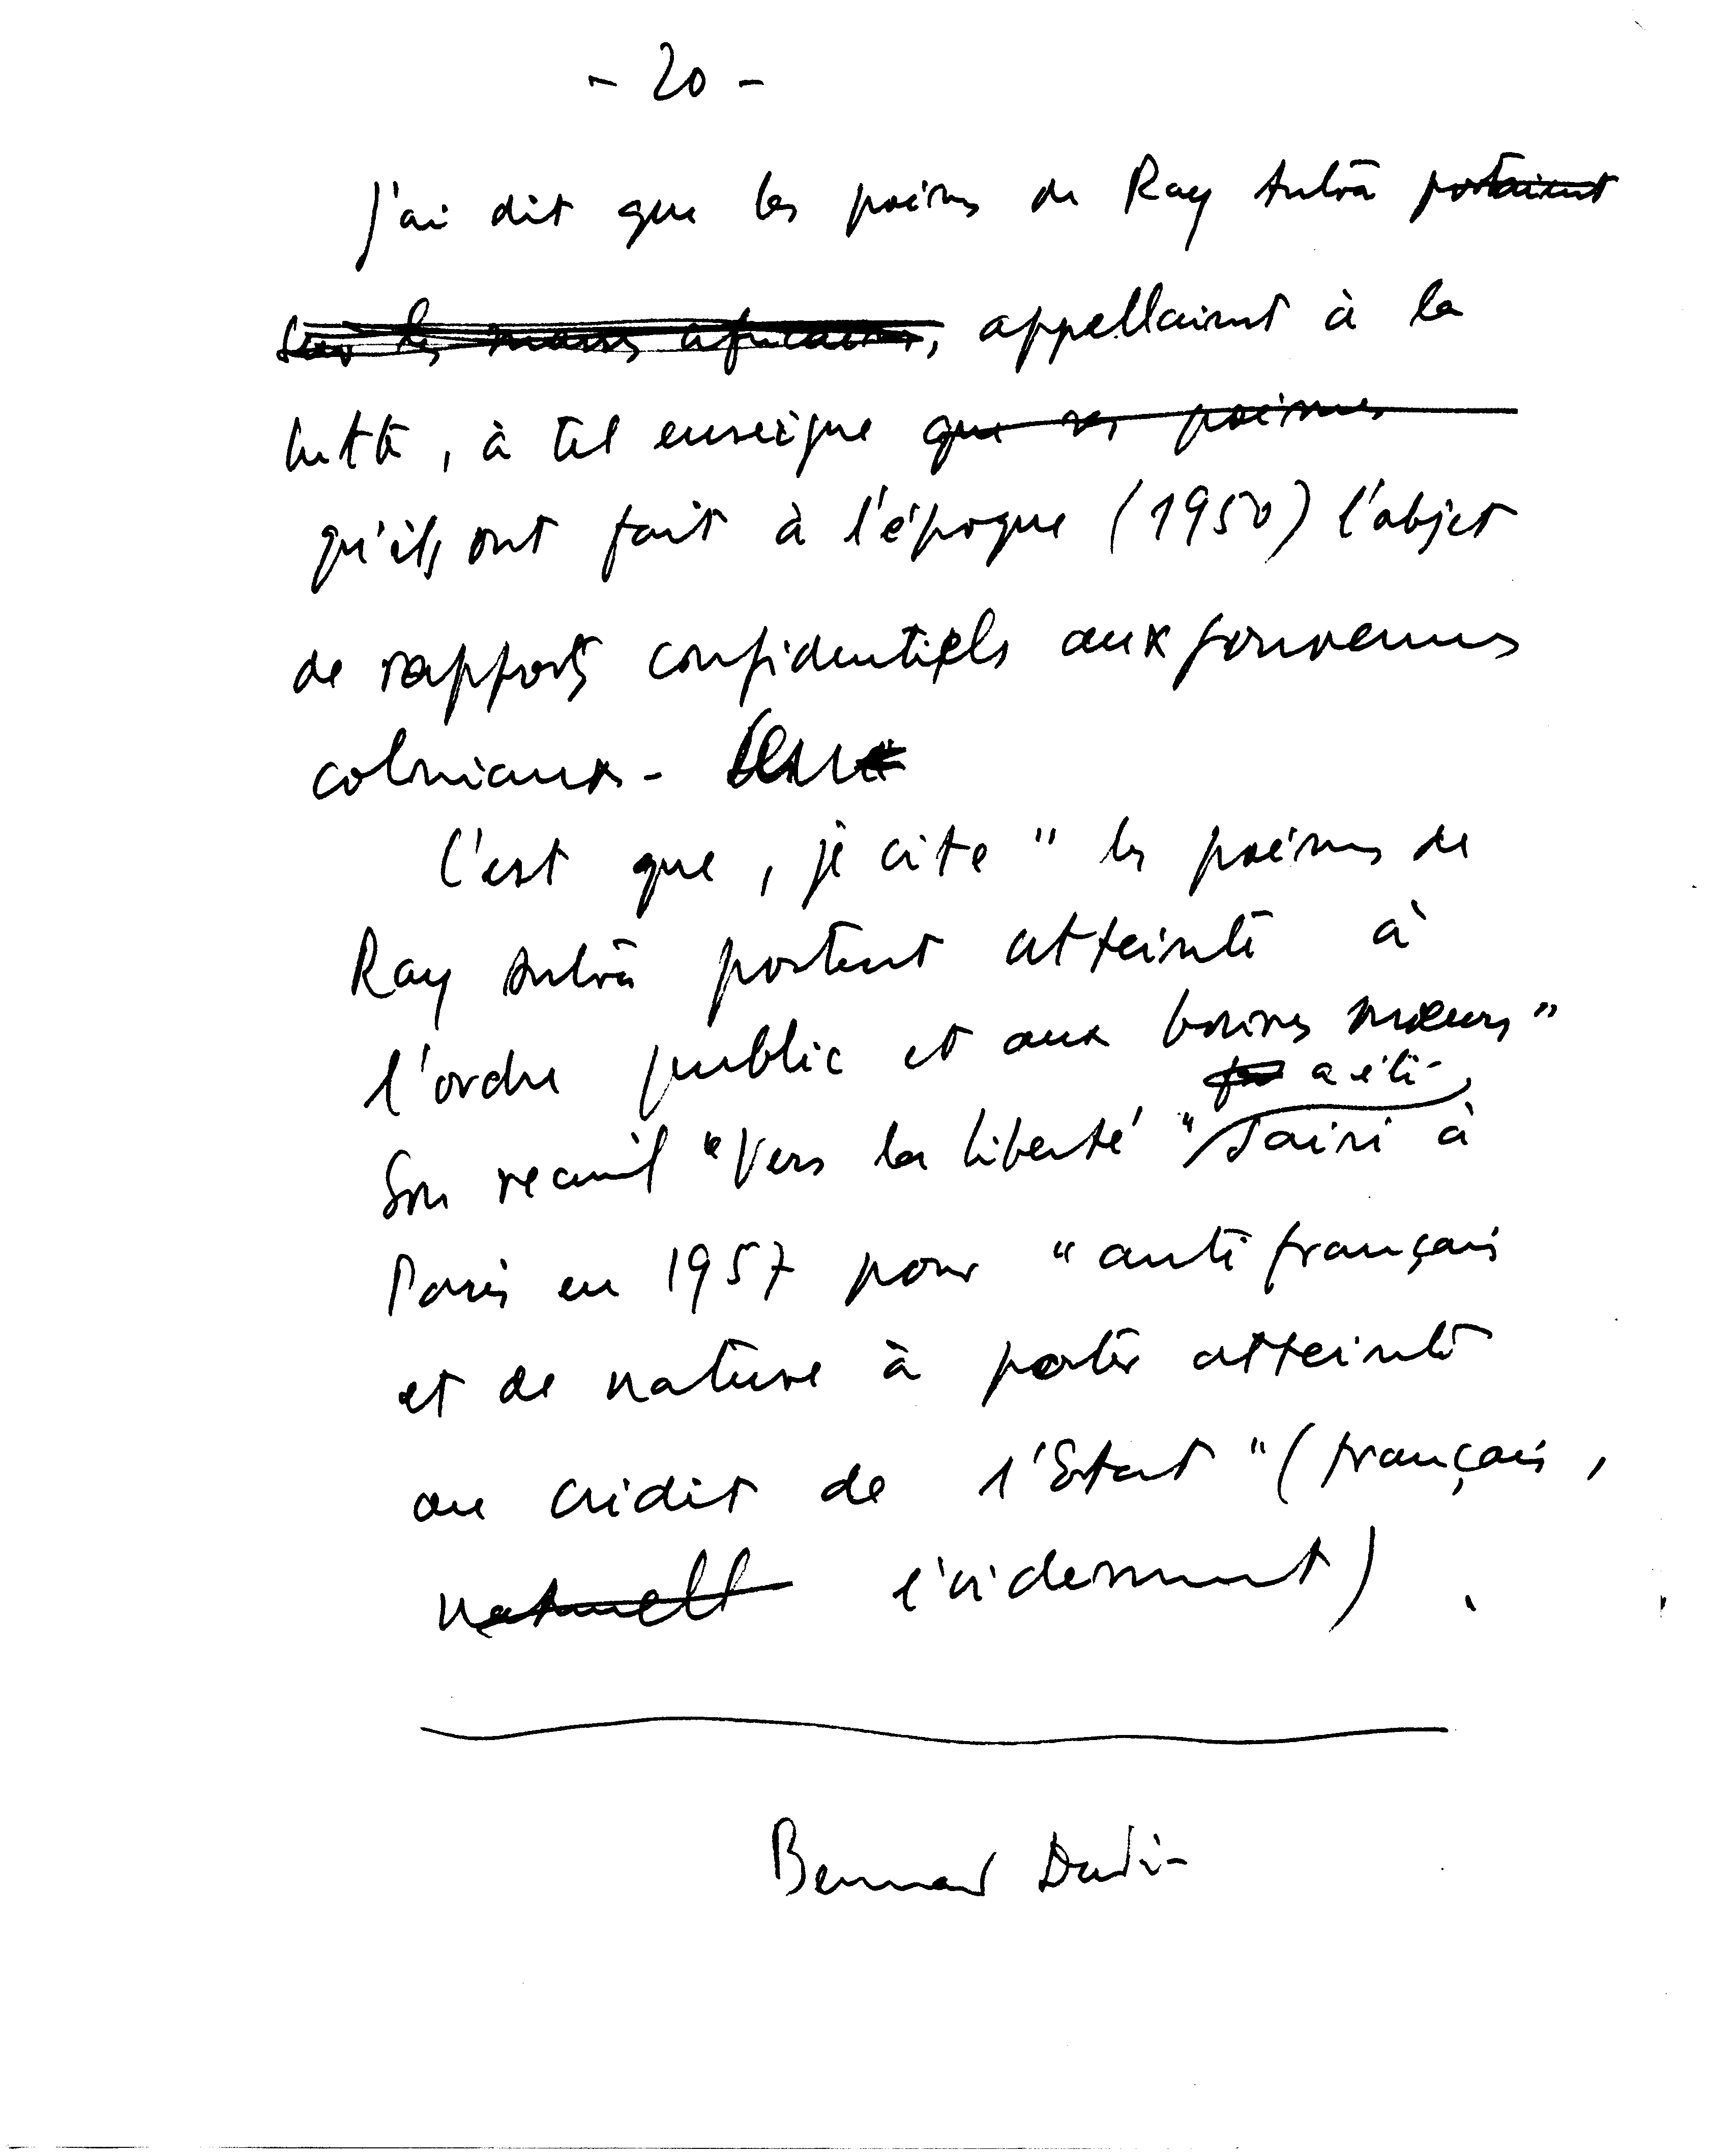 - 20 -
J'ai dit que les poèmes de Ray Autra portaient
sur les masses africaines, appellaient à la
lutte, à tel enseigne que ses poèmes
qu'ils ont fait à l'époque (1950) l'objet
de rapports confidentiels aux gouverneurs
coloniaux -
C'est que, je cite " les poèmes de
Ray Autra portent atteinte à
l'ordre public et aux bonnes moeurs "
a été
Son recueil "Vers la liberté" saisi à
Paris en 1957 pour " anti français
et de nature à porter atteinte
au crédit de l'Etat " (français,
naturell évidemment).
Bernard Dadié